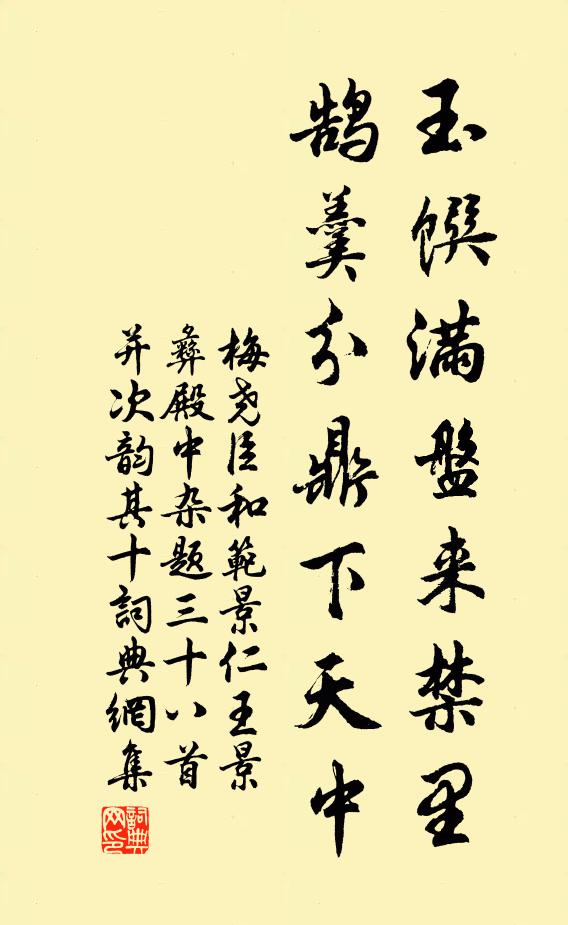 玉馔满盘来禁里
鹄羹分鼎下天中
梅尧臣和範景仁王景
彝殿中杂题三十八首
并次韵其十詞典網集
詞典网印